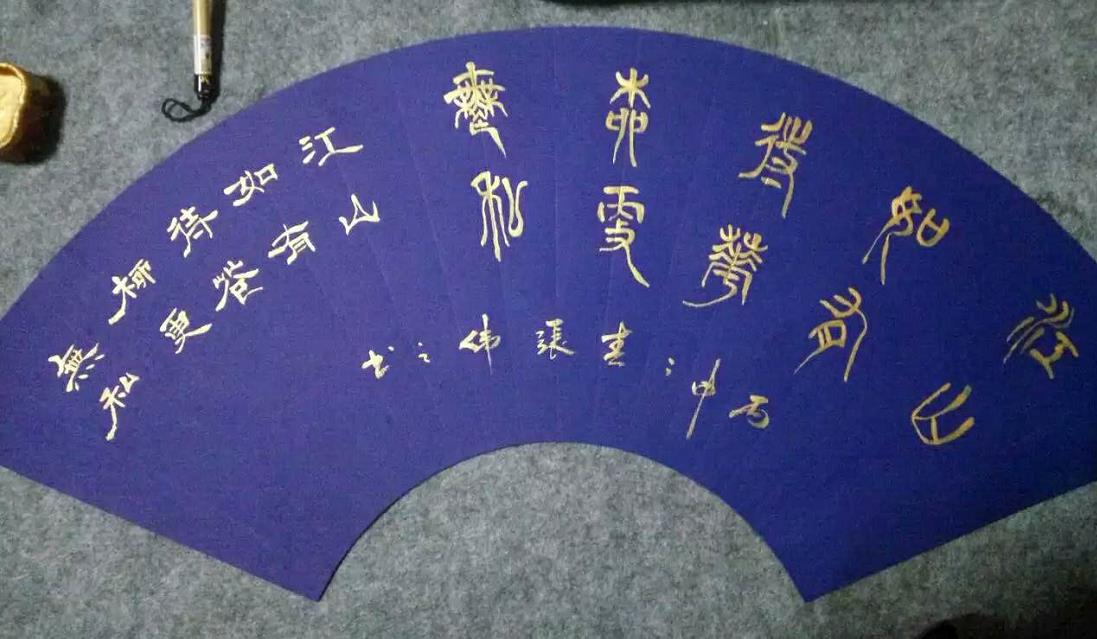 江山
如有
待華
柳更
無私
丙申之春張伟之书
江山
如有
待花
柳更
無私